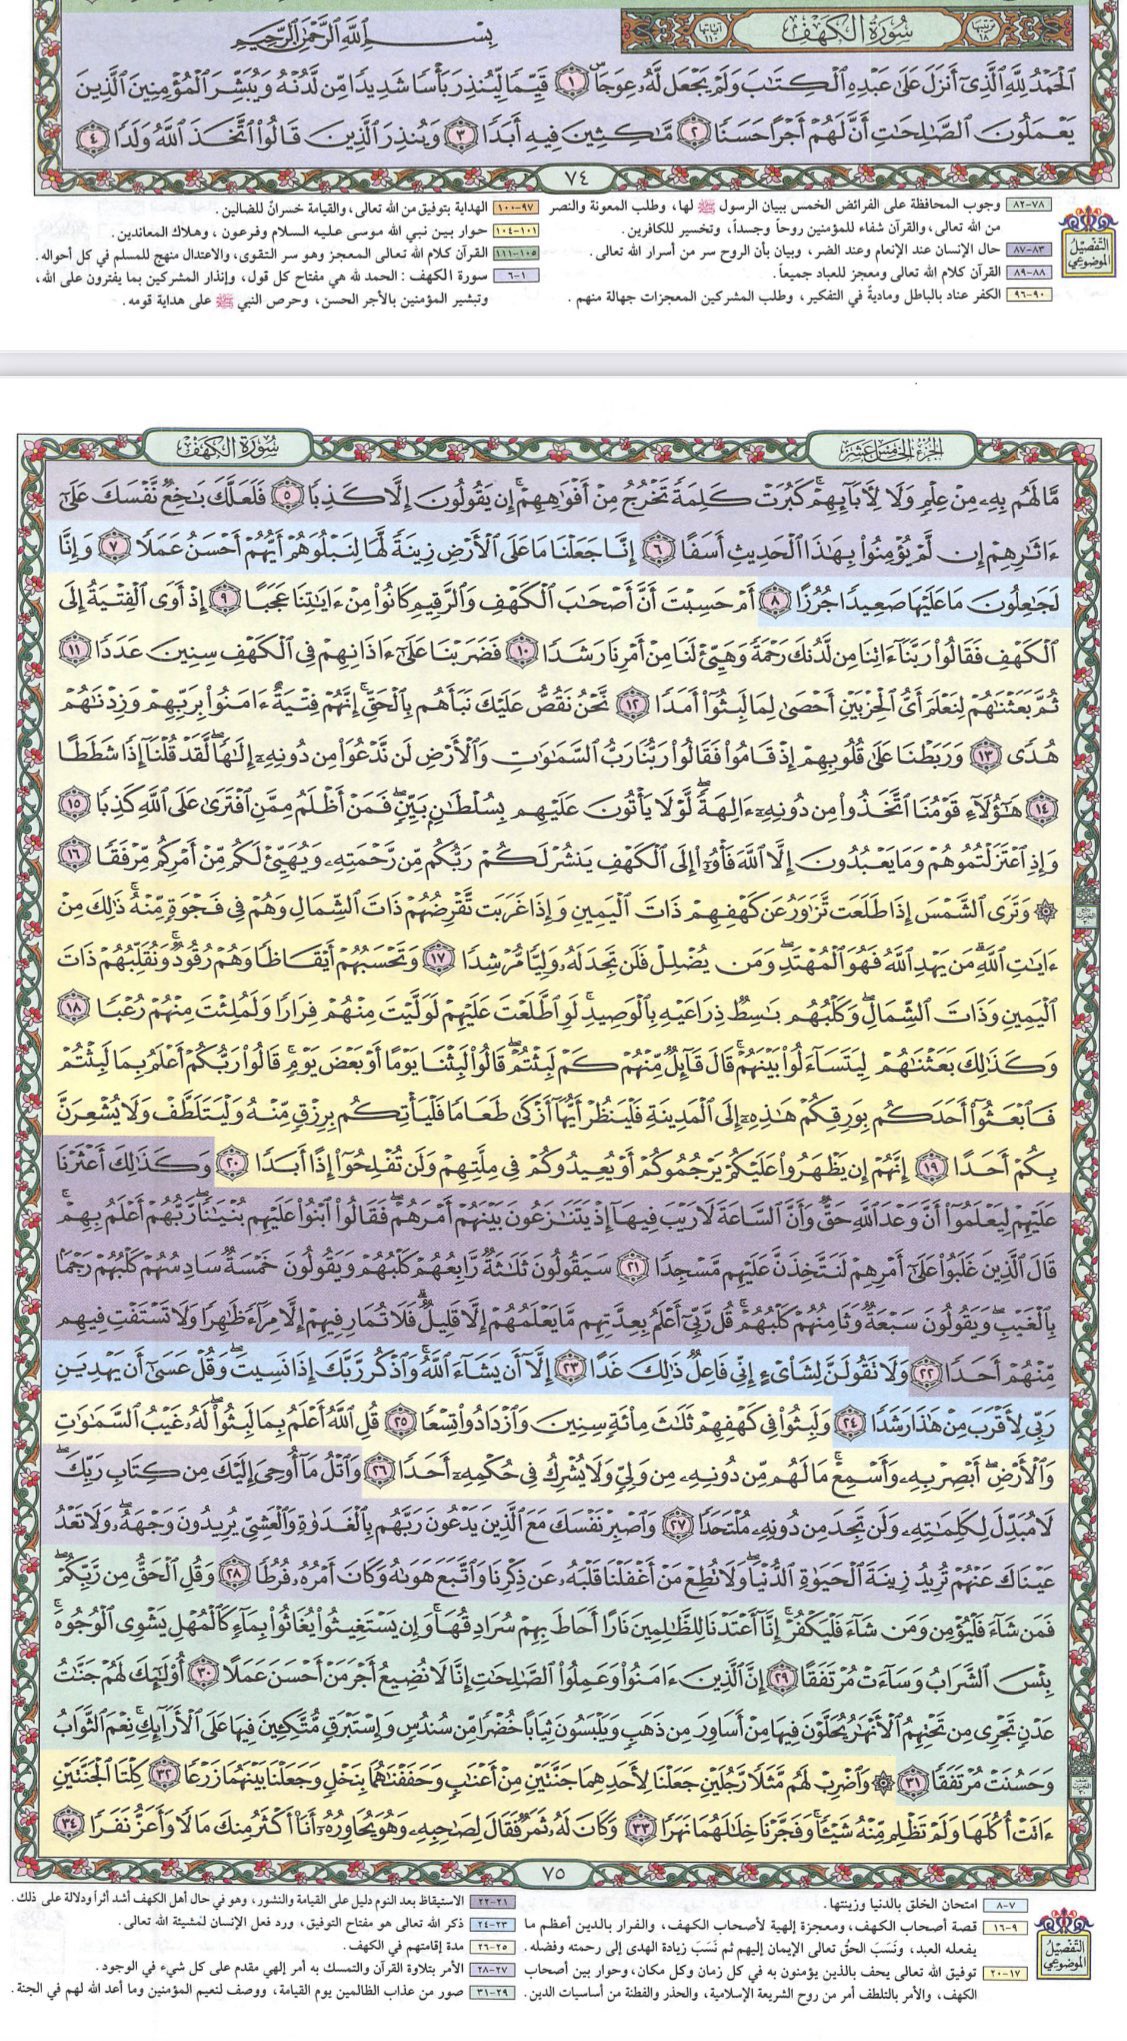 سُورَةُ الكَهْفِ
ترتيبها ١٨
آياتها ١١٠
بِسْمِ اللَّهِ الرَّحْمَٰنِ الرَّحِيمِ
الْحَمْدُ لِلَّهِ الَّذِي أَنزَلَ عَلَىٰ عَبْدِهِ الْكِتَابَ وَلَمْ يَجْعَل لَّهُ عِوَجَا ۜ ١ قَيِّمًا لِّيُنذِرَ بَأْسًا شَدِيدًا مِّن لَّدُنْهُ وَيُبَشِّرَ الْمُؤْمِنِينَ الَّذِينَ
يَعْمَلُونَ الصَّالِحَاتِ أَنَّ لَهُمْ أَجْرًا حَسَنًا ٢ مَّاكِثِينَ فِيهِ أَبَدًا ٣ وَيُنذِرَ الَّذِينَ قَالُوا اتَّخَذَ اللَّهُ وَلَدًا ٤
٧٤
التفصيل الموضوعي
٧٨-٨٢ وجوب المحافظة على الفرائض الخمس ببيان الرسول ﷺ لها، وطلب المعونة والنصر
من الله تعالى، والقرآن شفاء للمؤمنين روحاً وجسداً، وتخسير للكافرين.
٨٣-٨٧ حال الإنسان عند الإنعام وعند الضر، وبيان بأن الروح سر من أسرار الله تعالى.
٨٨-٨٩ القرآن كلام الله تعالى ومعجز للعباد جميعاً.
٩٠-٩٦ الكفر عناد بالباطل وماديةٌ في التفكير، وطلب المشركين المعجزات جهالة منهم.
٩٧-١٠٠ الهداية بتوفيق من الله تعالى، والقيامة خسرانٌ للضالين.
١٠١-١٠٤ حوار بين نبي الله موسى عليه السلام وفرعون، وهلاك المعاندين.
١٠٥-١١١ القرآن كلام الله تعالى المعجز وهو سر التقوى، والاعتدال منهج للمسلم في كل أحواله.
١-٦ سورة الكهف: الحمد لله هي مفتاح كل قول، وإنذار المشركين بما يفترون على الله،
وتبشير المؤمنين بالأجر الحسن، وحرص النبي ﷺ على هداية قومه.
الجزء الخامس عشر
سُورَةُ الكَهْفِ
مَّا لَهُم بِهِ مِنْ عِلْمٍ وَلَا لِآبَائِهِمْ ۚ كَبُرَتْ كَلِمَةً تَخْرُجُ مِنْ أَفْوَاهِهِمْ ۚ إِن يَقُولُونَ إِلَّا كَذِبًا ٥ فَلَعَلَّكَ بَاخِعٌ نَّفْسَكَ عَلَىٰ
آثَارِهِمْ إِن لَّمْ يُؤْمِنُوا بِهَٰذَا الْحَدِيثِ أَسَفًا ٦ إِنَّا جَعَلْنَا مَا عَلَى الْأَرْضِ زِينَةً لَّهَا لِنَبْلُوَهُمْ أَيُّهُمْ أَحْسَنُ عَمَلًا ٧ وَإِنَّا
لَجَاعِلُونَ مَا عَلَيْهَا صَعِيدًا جُرُزًا ٨ أَمْ حَسِبْتَ أَنَّ أَصْحَابَ الْكَهْفِ وَالرَّقِيمِ كَانُوا مِنْ آيَاتِنَا عَجَبًا ٩ إِذْ أَوَى الْفِتْيَةُ إِلَى
الْكَهْفِ فَقَالُوا رَبَّنَا آتِنَا مِن لَّدُنكَ رَحْمَةً وَهَيِّئْ لَنَا مِنْ أَمْرِنَا رَشَدًا ١٠ فَضَرَبْنَا عَلَىٰ آذَانِهِمْ فِي الْكَهْفِ سِنِينَ عَدَدًا ١١
ثُمَّ بَعَثْنَاهُمْ لِنَعْلَمَ أَيُّ الْحِزْبَيْنِ أَحْصَىٰ لِمَا لَبِثُوا أَمَدًا ١٢ نَّحْنُ نَقُصُّ عَلَيْكَ نَبَأَهُم بِالْحَقِّ ۚ إِنَّهُمْ فِتْيَةٌ آمَنُوا بِرَبِّهِمْ وَزِدْنَاهُمْ
هُدًى ١٣ وَرَبَطْنَا عَلَىٰ قُلُوبِهِمْ إِذْ قَامُوا فَقَالُوا رَبُّنَا رَبُّ السَّمَاوَاتِ وَالْأَرْضِ لَن نَّدْعُوَ مِن دُونِهِ إِلَٰهًا ۖ لَّقَدْ قُلْنَا إِذًا شَطَطًا
١٤ هَٰؤُلَاءِ قَوْمُنَا اتَّخَذُوا مِن دُونِهِ آلِهَةً ۖ لَّوْلَا يَأْتُونَ عَلَيْهِم بِسُلْطَانٍ بَيِّنٍ ۖ فَمَنْ أَظْلَمُ مِمَّنِ افْتَرَىٰ عَلَى اللَّهِ كَذِبًا ١٥
وَإِذِ اعْتَزَلْتُمُوهُمْ وَمَا يَعْبُدُونَ إِلَّا اللَّهَ فَأْوُوا إِلَى الْكَهْفِ يَنشُرْ لَكُمْ رَبُّكُم مِّن رَّحْمَتِهِ وَيُهَيِّئْ لَكُم مِّنْ أَمْرِكُم مِّرْفَقًا ١٦
۞ وَتَرَى الشَّمْسَ إِذَا طَلَعَت تَّزَاوَرُ عَن كَهْفِهِمْ ذَاتَ الْيَمِينِ وَإِذَا غَرَبَت تَّقْرِضُهُمْ ذَاتَ الشِّمَالِ وَهُمْ فِي فَجْوَةٍ مِّنْهُ ۚ ذَٰلِكَ مِنْ
آيَاتِ اللَّهِ ۗ مَن يَهْدِ اللَّهُ فَهُوَ الْمُهْتَدِ ۖ وَمَن يُضْلِلْ فَلَن تَجِدَ لَهُ وَلِيًّا مُّرْشِدًا ١٧ وَتَحْسَبُهُمْ أَيْقَاظًا وَهُمْ رُقُودٌ ۚ وَنُقَلِّبُهُمْ ذَاتَ
الْيَمِينِ وَذَاتَ الشِّمَالِ ۖ وَكَلْبُهُم بَاسِطٌ ذِرَاعَيْهِ بِالْوَصِيدِ ۚ لَوِ اطَّلَعْتَ عَلَيْهِمْ لَوَلَّيْتَ مِنْهُمْ فِرَارًا وَلَمُلِئْتَ مِنْهُمْ رُعْبًا ١٨
وَكَذَٰلِكَ بَعَثْنَاهُمْ لِيَتَسَاءَلُوا بَيْنَهُمْ ۚ قَالَ قَائِلٌ مِّنْهُمْ كَمْ لَبِثْتُمْ ۖ قَالُوا لَبِثْنَا يَوْمًا أَوْ بَعْضَ يَوْمٍ ۚ قَالُوا رَبُّكُمْ أَعْلَمُ بِمَا لَبِثْتُمْ
فَابْعَثُوا أَحَدَكُم بِوَرِقِكُمْ هَٰذِهِ إِلَى الْمَدِينَةِ فَلْيَنظُرْ أَيُّهَا أَزْكَىٰ طَعَامًا فَلْيَأْتِكُم بِرِزْقٍ مِّنْهُ وَلْيَتَلَطَّفْ وَلَا يُشْعِرَنَّ
بِكُمْ أَحَدًا ١٩ إِنَّهُمْ إِن يَظْهَرُوا عَلَيْكُمْ يَرْجُمُوكُمْ أَوْ يُعِيدُوكُمْ فِي مِلَّتِهِمْ وَلَن تُفْلِحُوا إِذًا أَبَدًا ٢٠ وَكَذَٰلِكَ أَعْثَرْنَا
عَلَيْهِمْ لِيَعْلَمُوا أَنَّ وَعْدَ اللَّهِ حَقٌّ وَأَنَّ السَّاعَةَ لَا رَيْبَ فِيهَا إِذْ يَتَنَازَعُونَ بَيْنَهُمْ أَمْرَهُمْ ۖ فَقَالُوا ابْنُوا عَلَيْهِم بُنْيَانًا ۖ رَّبُّهُمْ أَعْلَمُ بِهِمْ ۚ
قَالَ الَّذِينَ غَلَبُوا عَلَىٰ أَمْرِهِمْ لَنَتَّخِذَنَّ عَلَيْهِم مَّسْجِدًا ٢١ سَيَقُولُونَ ثَلَاثَةٌ رَّابِعُهُمْ كَلْبُهُمْ وَيَقُولُونَ خَمْسَةٌ سَادِسُهُمْ كَلْبُهُمْ رَجْمًا
بِالْغَيْبِ ۖ وَيَقُولُونَ سَبْعَةٌ وَثَامِنُهُمْ كَلْبُهُمْ ۚ قُل رَّبِّي أَعْلَمُ بِعِدَّتِهِم مَّا يَعْلَمُهُمْ إِلَّا قَلِيلٌ ۗ فَلَا تُمَارِ فِيهِمْ إِلَّا مِرَاءً ظَاهِرًا وَلَا تَسْتَفْتِ فِيهِم
مِّنْهُمْ أَحَدًا ٢٢ وَلَا تَقُولَنَّ لِشَيْءٍ إِنِّي فَاعِلٌ ذَٰلِكَ غَدًا ٢٣ إِلَّا أَن يَشَاءَ اللَّهُ ۚ وَاذْكُر رَّبَّكَ إِذَا نَسِيتَ ۖ وَقُلْ عَسَىٰ أَن يَهْدِيَنِ
رَبِّي لِأَقْرَبَ مِنْ هَٰذَا رَشَدًا ٢٤ وَلَبِثُوا فِي كَهْفِهِمْ ثَلَاثَ مِائَةٍ سِنِينَ وَازْدَادُوا تِسْعًا ٢٥ قُلِ اللَّهُ أَعْلَمُ بِمَا لَبِثُوا ۖ لَهُ غَيْبُ السَّمَاوَاتِ
وَالْأَرْضِ ۖ أَبْصِرْ بِهِ وَأَسْمِعْ ۚ مَا لَهُم مِّن دُونِهِ مِن وَلِيٍّ وَلَا يُشْرِكُ فِي حُكْمِهِ أَحَدًا ٢٦ وَاتْلُ مَا أُوحِيَ إِلَيْكَ مِن كِتَابِ رَبِّكَ ۖ
لَا مُبَدِّلَ لِكَلِمَاتِهِ وَلَن تَجِدَ مِن دُونِهِ مُلْتَحَدًا ٢٧ وَاصْبِرْ نَفْسَكَ مَعَ الَّذِينَ يَدْعُونَ رَبَّهُم بِالْغَدَاةِ وَالْعَشِيِّ يُرِيدُونَ وَجْهَهُ ۖ وَلَا تَعْدُ
عَيْنَاكَ عَنْهُمْ تُرِيدُ زِينَةَ الْحَيَاةِ الدُّنْيَا ۖ وَلَا تُطِعْ مَنْ أَغْفَلْنَا قَلْبَهُ عَن ذِكْرِنَا وَاتَّبَعَ هَوَاهُ وَكَانَ أَمْرُهُ فُرُطًا ٢٨ وَقُلِ الْحَقُّ مِن رَّبِّكُمْ ۖ
فَمَن شَاءَ فَلْيُؤْمِن وَمَن شَاءَ فَلْيَكْفُرْ ۚ إِنَّا أَعْتَدْنَا لِلظَّالِمِينَ نَارًا أَحَاطَ بِهِمْ سُرَادِقُهَا ۚ وَإِن يَسْتَغِيثُوا يُغَاثُوا بِمَاءٍ كَالْمُهْلِ يَشْوِي الْوُجُوهَ ۚ
بِئْسَ الشَّرَابُ وَسَاءَتْ مُرْتَفَقًا ٢٩ إِنَّ الَّذِينَ آمَنُوا وَعَمِلُوا الصَّالِحَاتِ إِنَّا لَا نُضِيعُ أَجْرَ مَنْ أَحْسَنَ عَمَلًا ٣٠ أُولَٰئِكَ لَهُمْ جَنَّاتُ
عَدْنٍ تَجْرِي مِن تَحْتِهِمُ الْأَنْهَارُ يُحَلَّوْنَ فِيهَا مِنْ أَسَاوِرَ مِن ذَهَبٍ وَيَلْبَسُونَ ثِيَابًا خُضْرًا مِّن سُندُسٍ وَإِسْتَبْرَقٍ مُّتَّكِئِينَ فِيهَا عَلَى الْأَرَائِكِ ۚ نِعْمَ الثَّوَابُ
وَحَسُنَتْ مُرْتَفَقًا ٣١ ۞ وَاضْرِبْ لَهُم مَّثَلًا رَّجُلَيْنِ جَعَلْنَا لِأَحَدِهِمَا جَنَّتَيْنِ مِنْ أَعْنَابٍ وَحَفَفْنَاهُمَا بِنَخْلٍ وَجَعَلْنَا بَيْنَهُمَا زَرْعًا ٣٢ كِلْتَا الْجَنَّتَيْنِ
آتَتْ أُكُلَهَا وَلَمْ تَظْلِم مِّنْهُ شَيْئًا ۚ وَفَجَّرْنَا خِلَالَهُمَا نَهَرًا ٣٣ وَكَانَ لَهُ ثَمَرٌ فَقَالَ لِصَاحِبِهِ وَهُوَ يُحَاوِرُهُ أَنَا أَكْثَرُ مِنكَ مَالًا وَأَعَزُّ نَفَرًا ٣٤
٧٥
التفصيل الموضوعي
٧-٨ امتحان الخلق بالدنيا وزينتها.
٩-١٦ قصة أصحاب الكهف، ومعجزة إلهية لأصحاب الكهف، والفرار بالدين أعظم ما
يفعله العبد، ونَسَبَ الحقُّ تعالى الإيمان إليهم ثم نَسَبَ زيادة الهدى إلى رحمته وفضله.
١٧-٢٠ توفيق الله تعالى يحف بالذين يؤمنون به في كل زمان وكل مكان، وحوار بين أصحاب
الكهف، والأمر بالتلطف أمر من روح الشريعة الإسلامية، والحذر والفطنة من أساسيات الدين.
٢١-٢٢ الاستيقاظ بعد النوم دليل على القيامة والنشور، وهو في حال أهل الكهف أشد أثراً ودلالة على ذلك.
٢٣-٢٤ ذكر الله تعالى هو مفتاح التوفيق، ورد فعل الإنسان لمشيئة الله تعالى.
٢٥-٢٦ مدة إقامتهم في الكهف.
٢٧-٢٨ الأمر بتلاوة القرآن والتمسك به أمر إلهي مقدم على كل شيء في الوجود.
٢٩-٣١ صور من عذاب الظالمين يوم القيامة، ووصف لنعيم المؤمنين وما أعد الله لهم في الجنة.